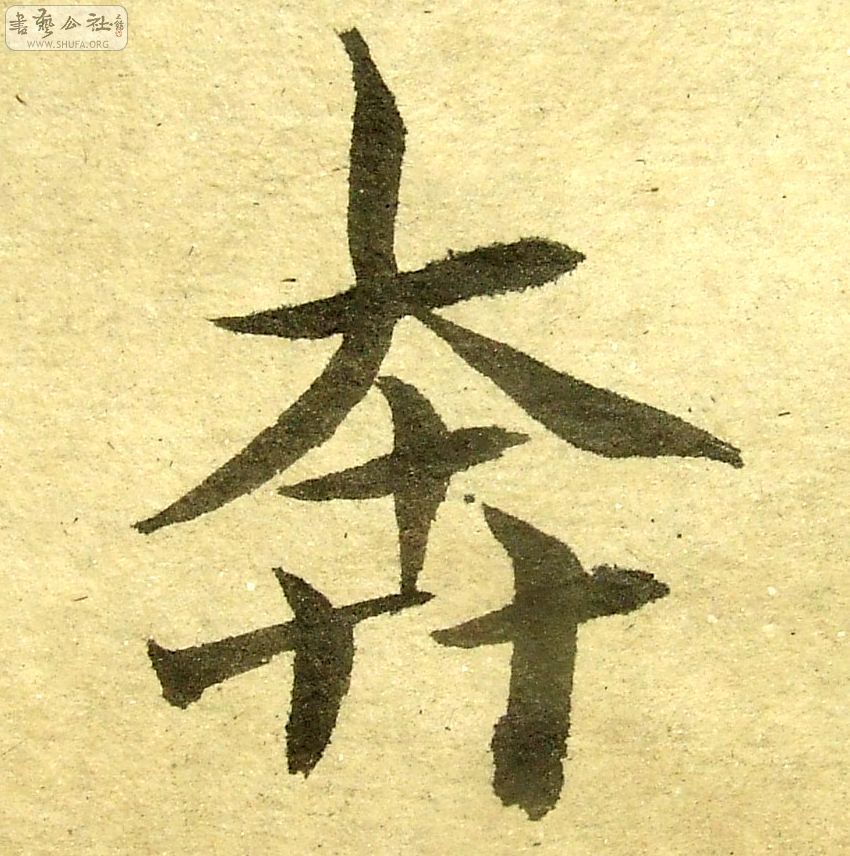 書藝公社
WWW.SHUFA.ORG
奔